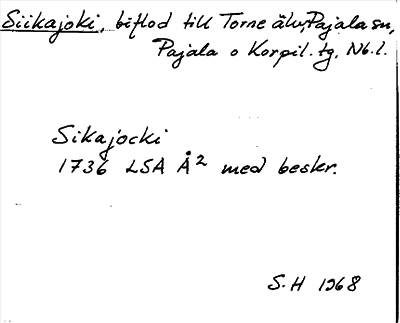 Siikajoki, biflod till Torne älv, Pajala sn,
Pajala o Korpil. tg, Nb. l.
Sikajocki
1736 LSA Å2 med beskr.
S.H 1968